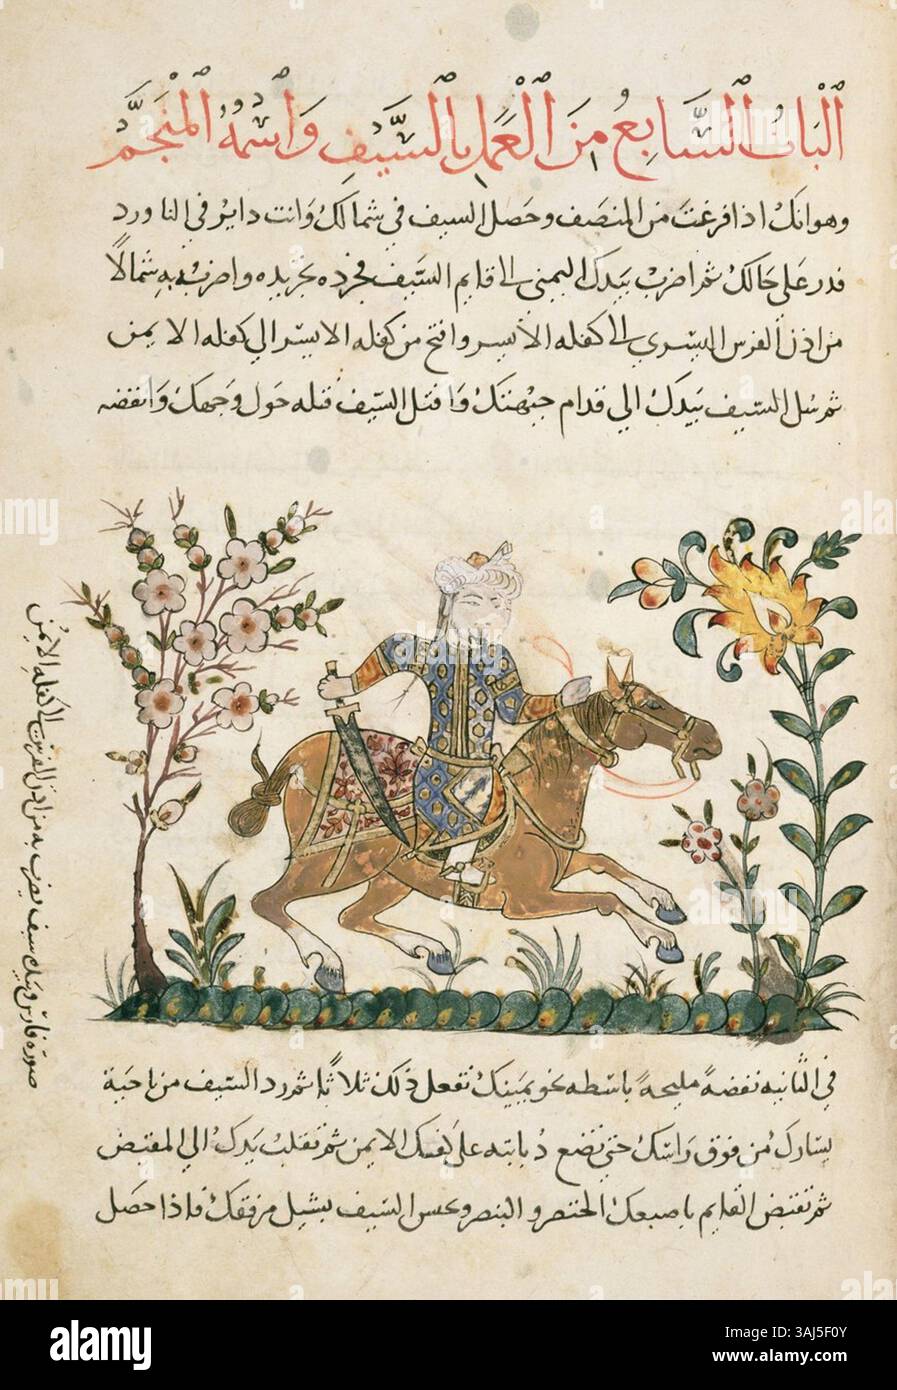 الْبَابُ السَّابِعُ مِنَ الْعَمَلِ بِالسَّيْفِ وَاسْمُهُ الْمُنَجِّمُ
وهو انك اذا فرغت من المنصف وحصل السيف في شمالك وانت داير في الناورد
فدر على حالك ثم اضرب بيدك اليمنى الى قايم السيف فجرده بجريده واضرب به شمالاً
من اذن الفرس اليسرى الى كفله الايسر وافتح من كفله الايسر الى كفله الايمن
ثم سل السيف بيدك الى قدام جبهتك وافتل السيف فتله حول وجهك وانفضه
صورة فارس وبيده سيف يضرب به من اذن الفرس الى كفله الايمن
في الثانيه نفضةً مليحةً باسطه نحو يمينك تفعل ذلك ثلاثاً ثم رد السيف من ناحية
يسارك من فوق راسك حتى تضع ذبابته على كتفك الايمن ثم تقلب يدك الى المقبض
ثم تقبض القايم باصبعك الخنصر والبنصر وبحبس السيف بشيل مرفقك فاذا حصل
alamy
alamy
Image ID: 3AJ5F0Y
www.alamy.com